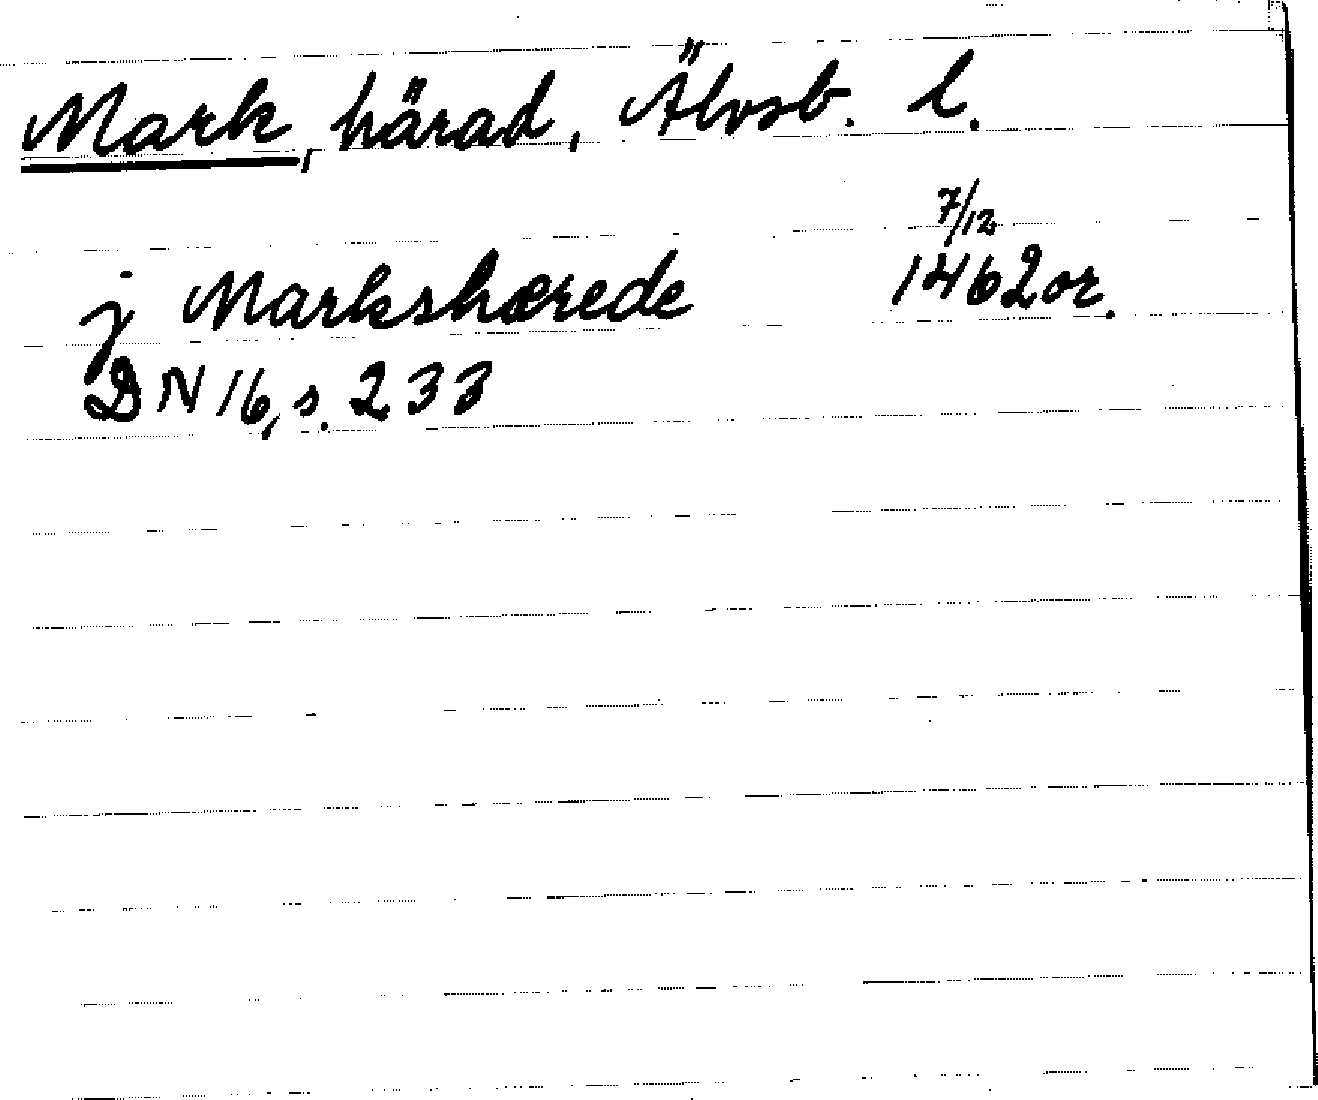 Mark, härad, Älvsb. l.
7/12
j Markshærede 1462 or.
DN 16, s. 233